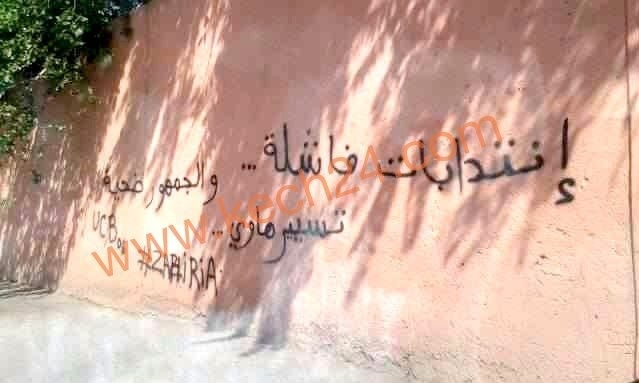 إنتدابات فاشلة ... والجمهور ضحية
تسيير هاوي ...
UCB
#ZAHIRIA
www.kech24.com